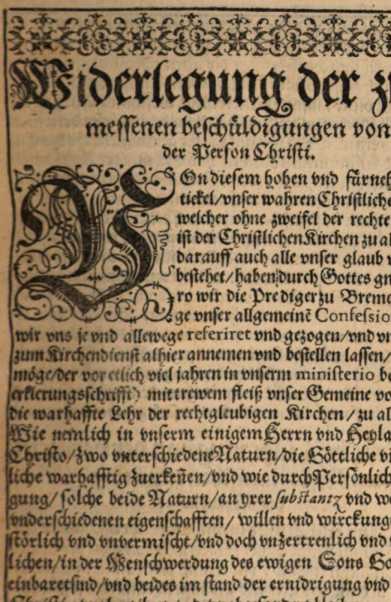 Widerlegung der z
messenen beschüldigungen von
der Person Christi.
VOn diesem hohen vnd fürneh
tickel/vnser wahren Christliche
welcher ohne zweifel der rechte
ist der Christlichen Kirchen zu al
darauff auch alle vnser glaub v
bestehet/haben durch Gottes gn
ro wir die Prediger zu Breme
ge vnser allgemeine Confessio
wir vns je vnd allewege referiret vnd gezogen/vnd vn
zum Kirchendienst alhier annemen vnd bestellen lassen/
möge/der vor etlich viel jahren in vnserm ministerio be
erklerungsschrifft) mit trewem fleiß vnser Gemeine vo
die warhaffte Lehr der rechtgleubigen Kirchen/zu al
Wie nemlich in vnserm einigem Herrn vnd Heyla
Christo/zwo vnterschiedene Naturn/die Göttliche vn
liche warhafftig zuerkeñen/vnd wie durch Persönlich
gung/solche beide Naturn/an yrer substantz vnd we
vnderschiedenen eigenschafften/willen vnd wirckung
störlich vnd vnvermischt/vnd doch vnzertrenlich vnd
lichen/in der Menschwerdung des ewigen Sons Go
einbaret sind/vnd beides im stand der ernidrigung vnd